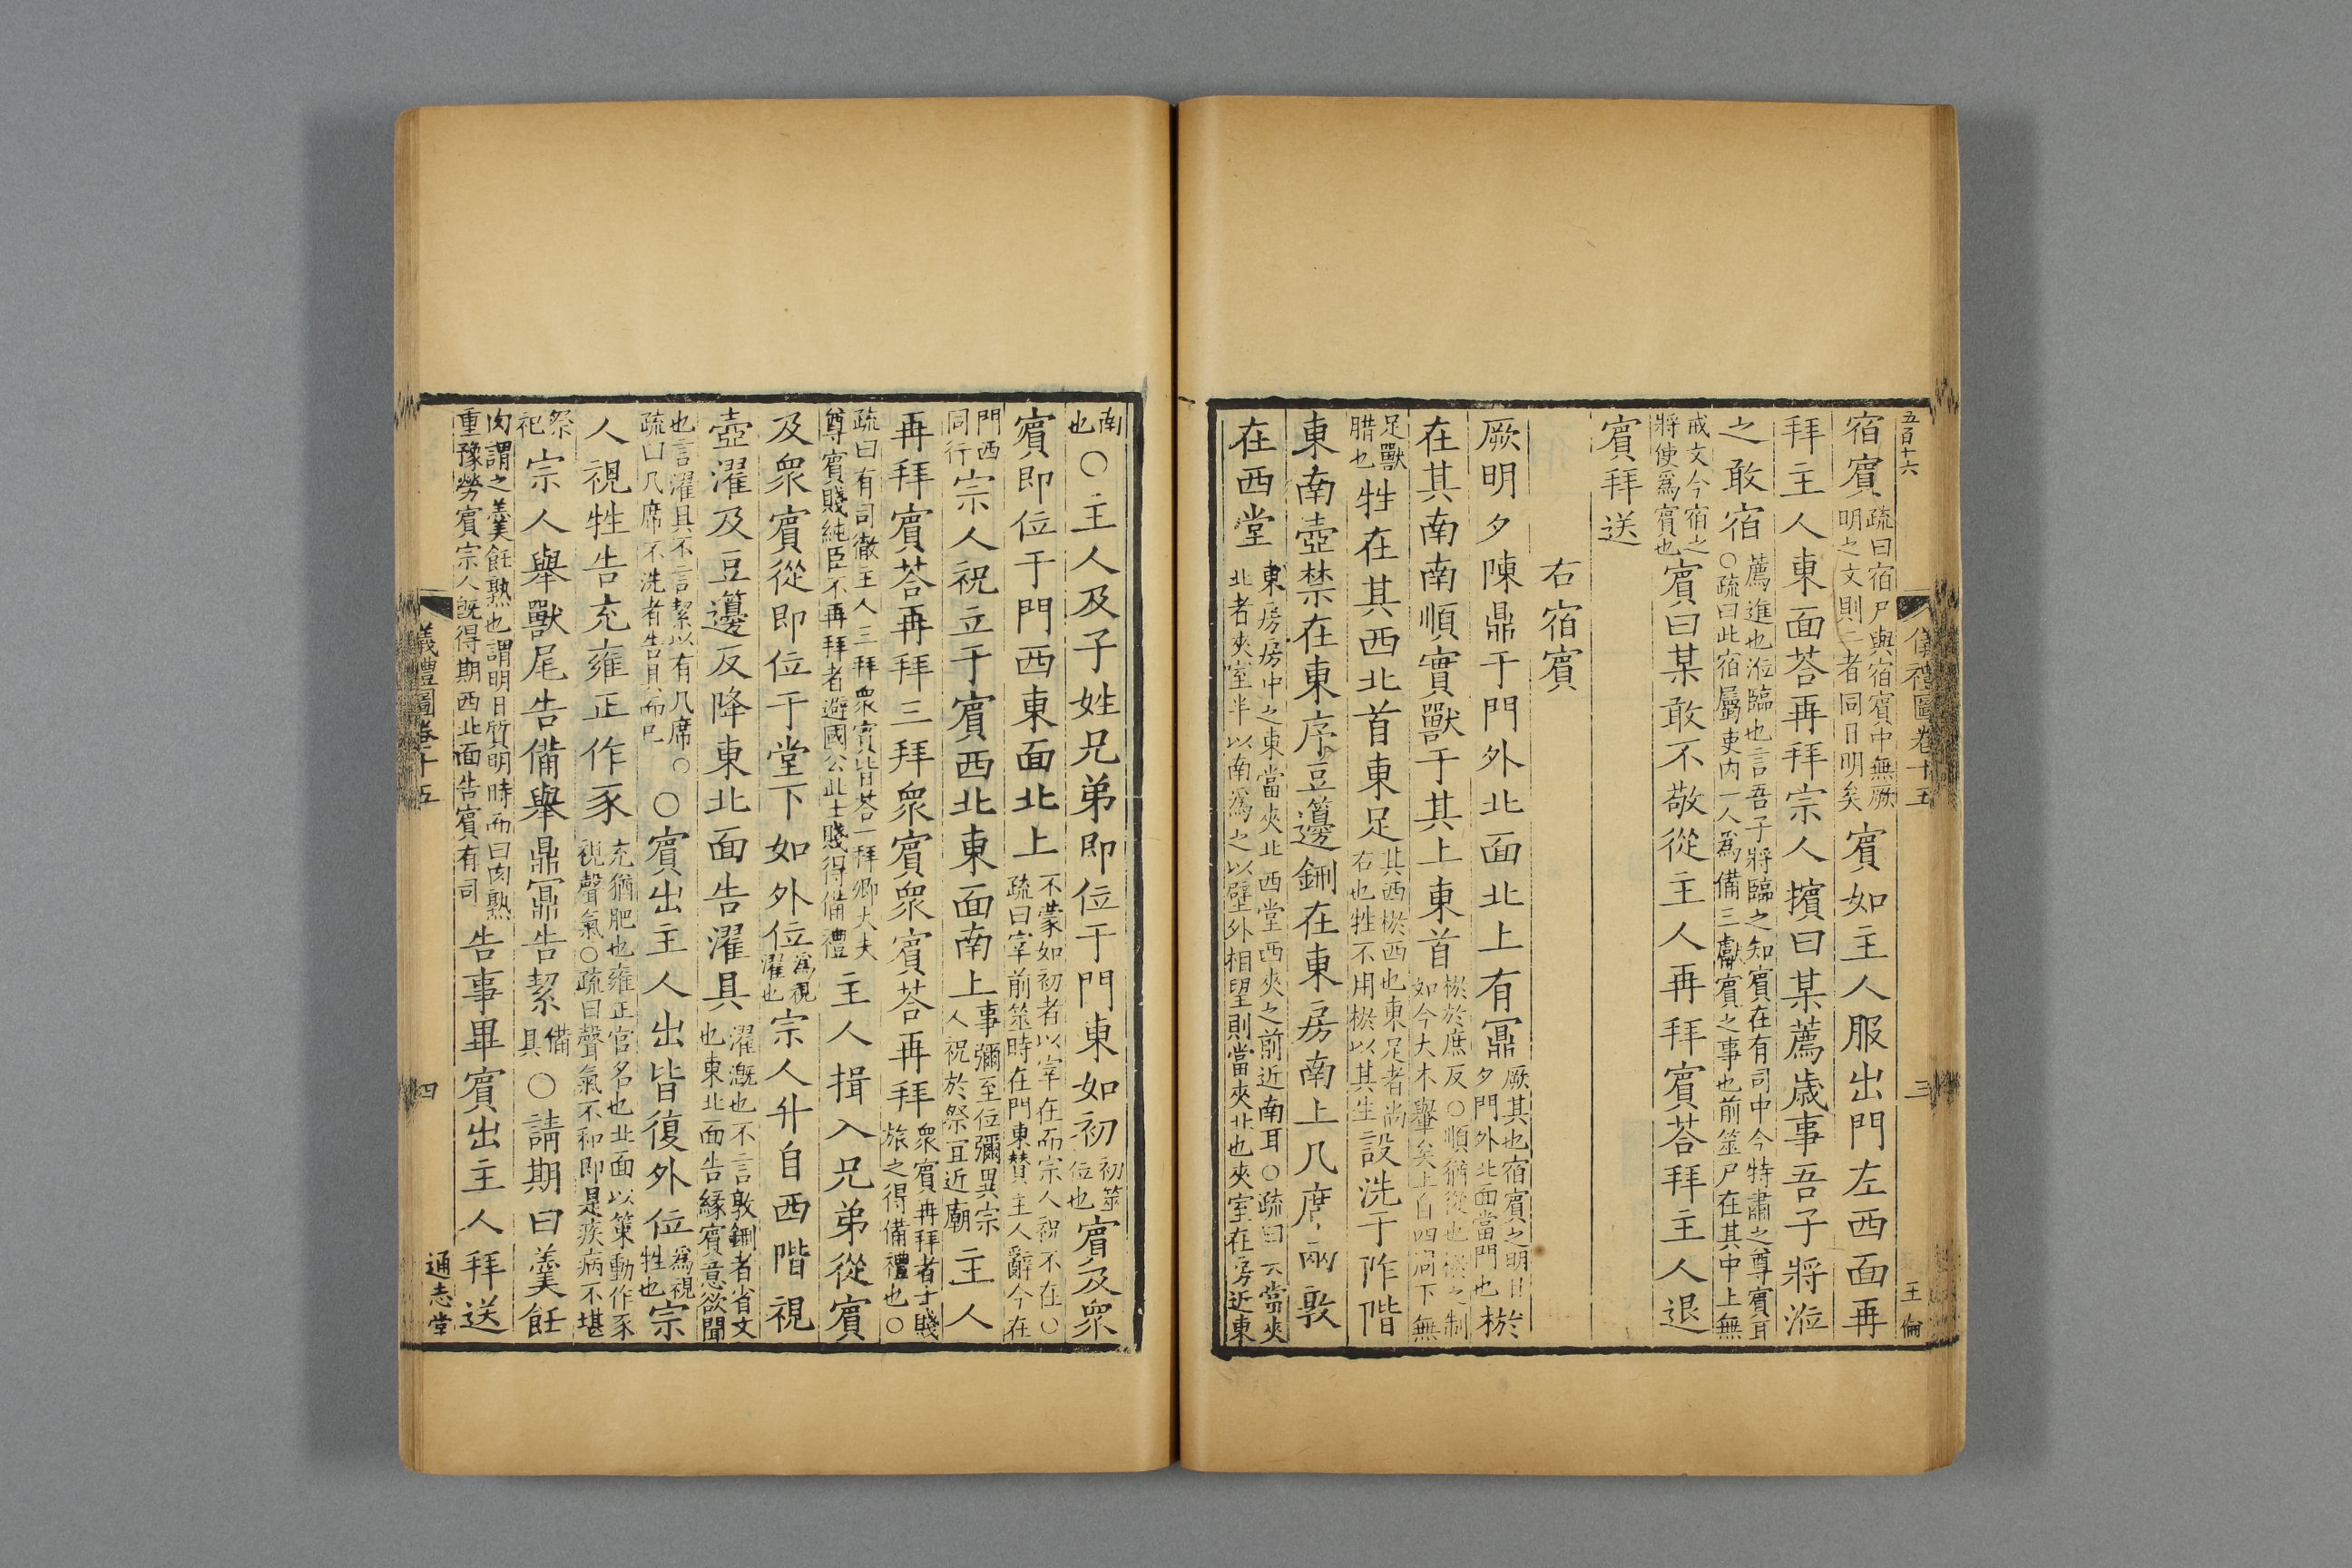 五百十六
儀禮圖卷十五
三
王倫
宿賓疏曰宿尸與宿賓中無厥明之文則二者同日明矣賓如主人服出門左西面再
拜主人東面荅再拜宗人擯曰某薦歲事吾子將涖
之敢宿薦進也涖臨也言吾子將臨之知賓在有司中今特肅之尊賓耳○疏曰此宿屬吏內一人為備三獻賓之事也前筮尸在其中上無
戒文今宿之將使為賓也賓曰某敢不敬從主人再拜賓荅拜主人退
賓拜送
右宿賓
厥明夕陳鼎于門外北面北上有鼏厥其也宿賓之明日夕門外北面當門也棜於
在其南南順實獸于其上東首棜於庶反○順猶從也棜之制如今大木轝矣上有四周下無
足獸腊也牲在其西北首東足其西棜西也東足者尚右也牲不用棜以其生設洗于阼階
東南壺禁在東序豆籩鉶在東房南上几席兩敦
在西堂東房房中之東當夾北西堂西夾之前近南耳○疏曰云當夾北者夾室半以南為之以壁外相望則當夾北也夾室在房近東
南也○主人及子姓兄弟即位于門東如初初筮位也賓及眾
賓即位于門西東面北上不蒙如初者以宰在而宗人祝不在○疏曰宰前筮時在門東贊主人辭今在
門西同行宗人祝立于賓西北東面南上事彌至位彌異宗人祝於祭宜近廟主人
再拜賓荅再拜三拜眾賓眾賓荅再拜眾賓再拜者士賤旅之得備禮也○
疏曰有司徹主人三拜眾賓皆荅一拜卿大夫尊賓賤純臣不再拜者避國公此士賤得備禮主人揖入兄弟從賓
及眾賓從即位于堂下如外位為視濯也宗人升自西階視
壺濯及豆籩反降東北面告濯具濯漑也不言敦鉶者省文也東北面告緣賓意欲聞
也言濯具不言絜以有几席○疏曰几席不洗者告具而已○賓出主人出皆復外位為視牲也宗
人視牲告充雍正作豕充猶肥也雍正官名也北面以策動作豕視聲氣○疏曰聲氣不和即是疾病不堪
祭祀宗人舉獸尾告備舉鼎鼏告絜備具○請期曰羹飪
肉謂之羹飪熟也謂明日質明時而曰肉熟重豫勞賓宗人既得期西北面告賓有司告事畢賓出主人拜送
儀禮圖卷十五
四
通志堂